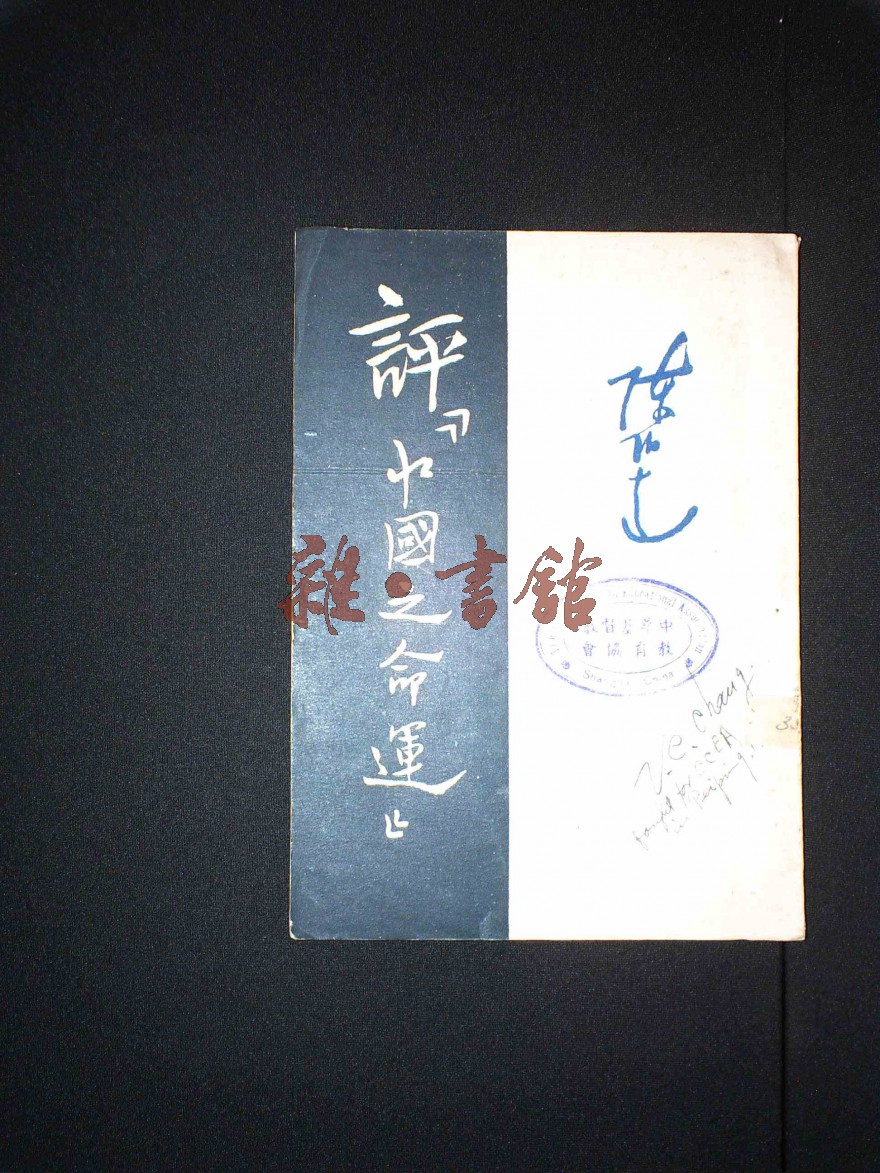 評『中國之命運』
陳伯達
雜·書館
Educational Association
中華基督教
教育協會
Shanghai China
V. C. Chang
bought for CCEA
in Peiping